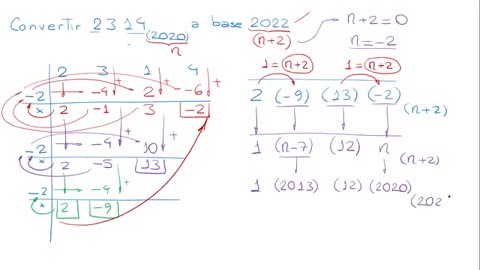 Convertir 2 3 1 4 (2020) a base 2022
n
(n+2)
n+2=0
n=-2
1=(n+2) 1=(n+2)
2 3 1 4
-2 -4 + 2 + -6 +
x 2 -1 3 -2
-2 -4 + 10 +
x 2 -5 13
-2 -4 +
x 2 -9
2 (-9) (13) (-2) (n+2)
1 (n-7) (12) n (n+2)
1 (2013) (12) (2020) (202